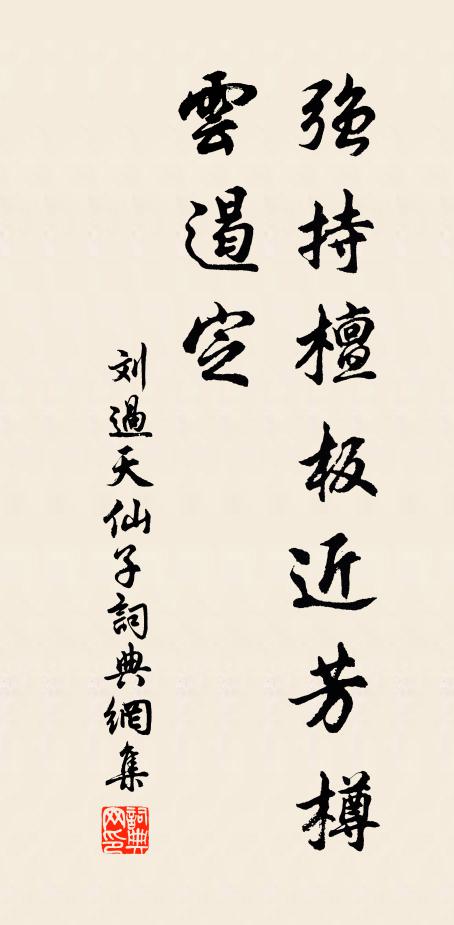 強持檀板近芳樽
雲遏定
刘過天仙子詞典網集
詞典网印